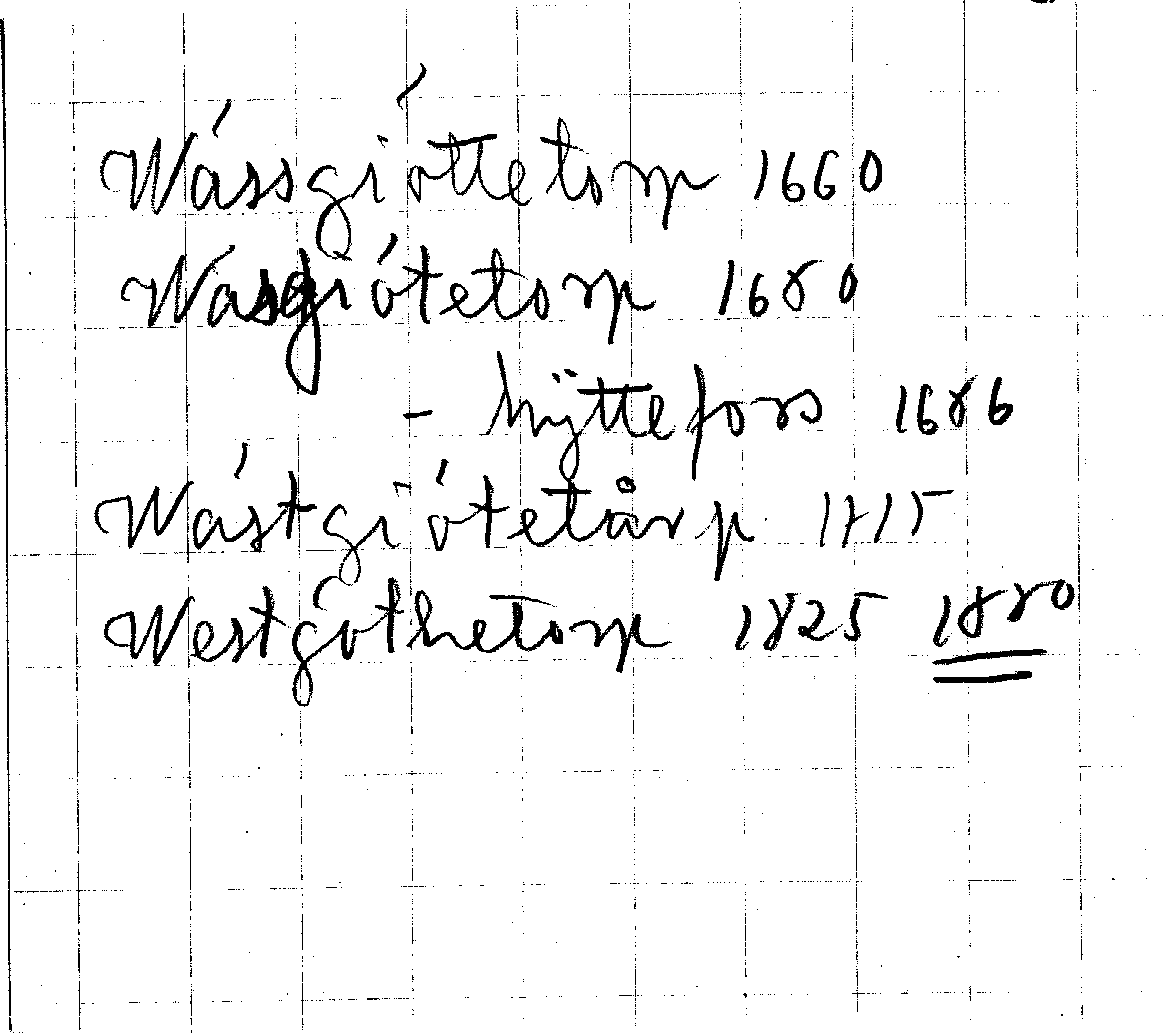 Wássgióttetorp 1660
Wásgiótetorp 1680
- hÿttefors 1686
Wástgiótetårp 1715
Westgóthetorp 1825 1880